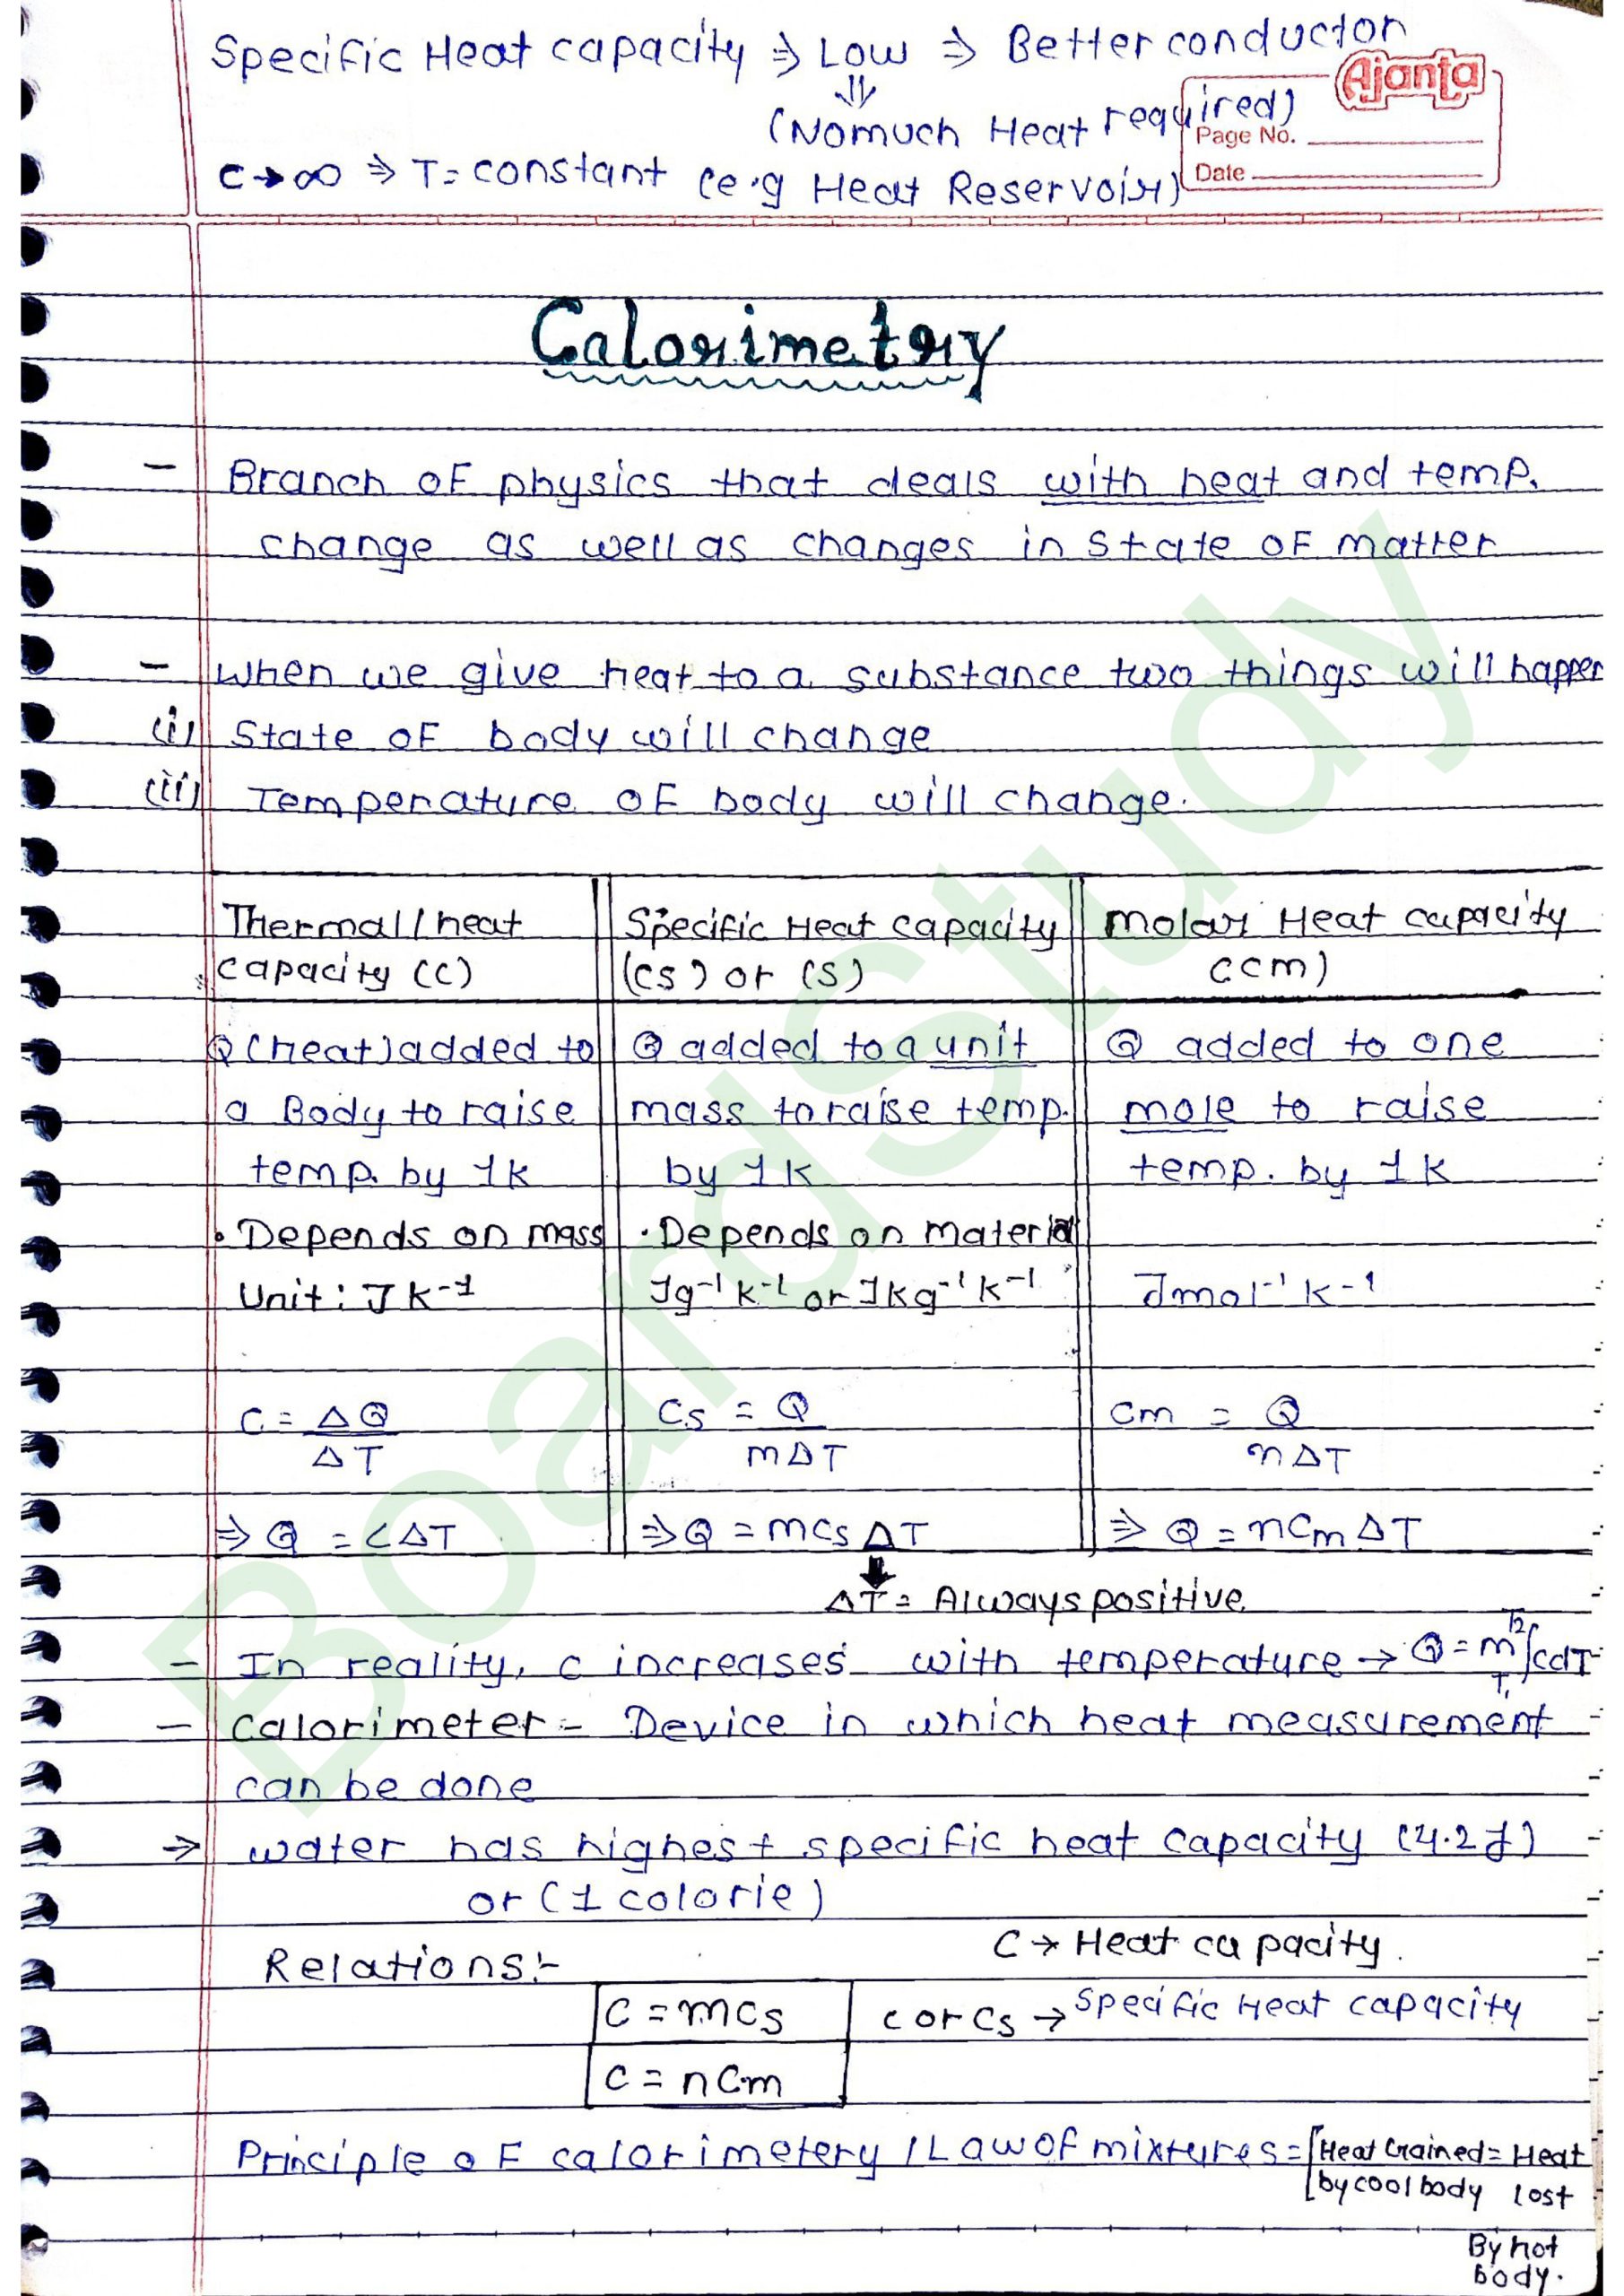 Specific Heat capacity ⇒ Low ⇒ Better conductor
⇓
(No much Heat required)
C→∞ ⇒ T= constant (e.g Heat Reservoir)
Ajanta
Page No.
Date
Calorimetry
- Branch of physics that deals with heat and temp.
change as well as changes in state of matter
- When we give heat to a substance two things will happen
(i) State of body will change
(ii) Temperature of body will change.
Thermal/heat capacity (C) | Specific Heat capacity (Cs) or (S) | Molar Heat capacity (Cm)
Q (heat) added to | Q added to a unit | Q added to one
a Body to raise | mass to raise temp. | mole to raise
temp. by 1k | by 1K | temp. by 1K
• Depends on mass | • Depends on material
Unit: J k⁻¹ | Jg⁻¹ k⁻¹ or Jkg⁻¹ k⁻¹ | Jmol⁻¹ k⁻¹
C = ΔQ/ΔT | Cs = Q/mΔT | Cm = Q/nΔT
⇒ Q = CΔT | ⇒ Q = mCsΔT | ⇒ Q = nCmΔT
ΔT = Always positive
- In reality, c increases with temperature → Q = m ∫ cdT
T2
T1
- Calorimeter - Device in which heat measurement
can be done
⇒ water has highest specific heat capacity (4.2 J)
or (1 calorie)
C → Heat capacity.
Relations:-
C = mCs
c or Cs → Specific Heat capacity
C = nCm
Principle of calorimetery / Law of mixtures = [Heat Gained = Heat
by cool body lost
By hot
body.
BoardStudy